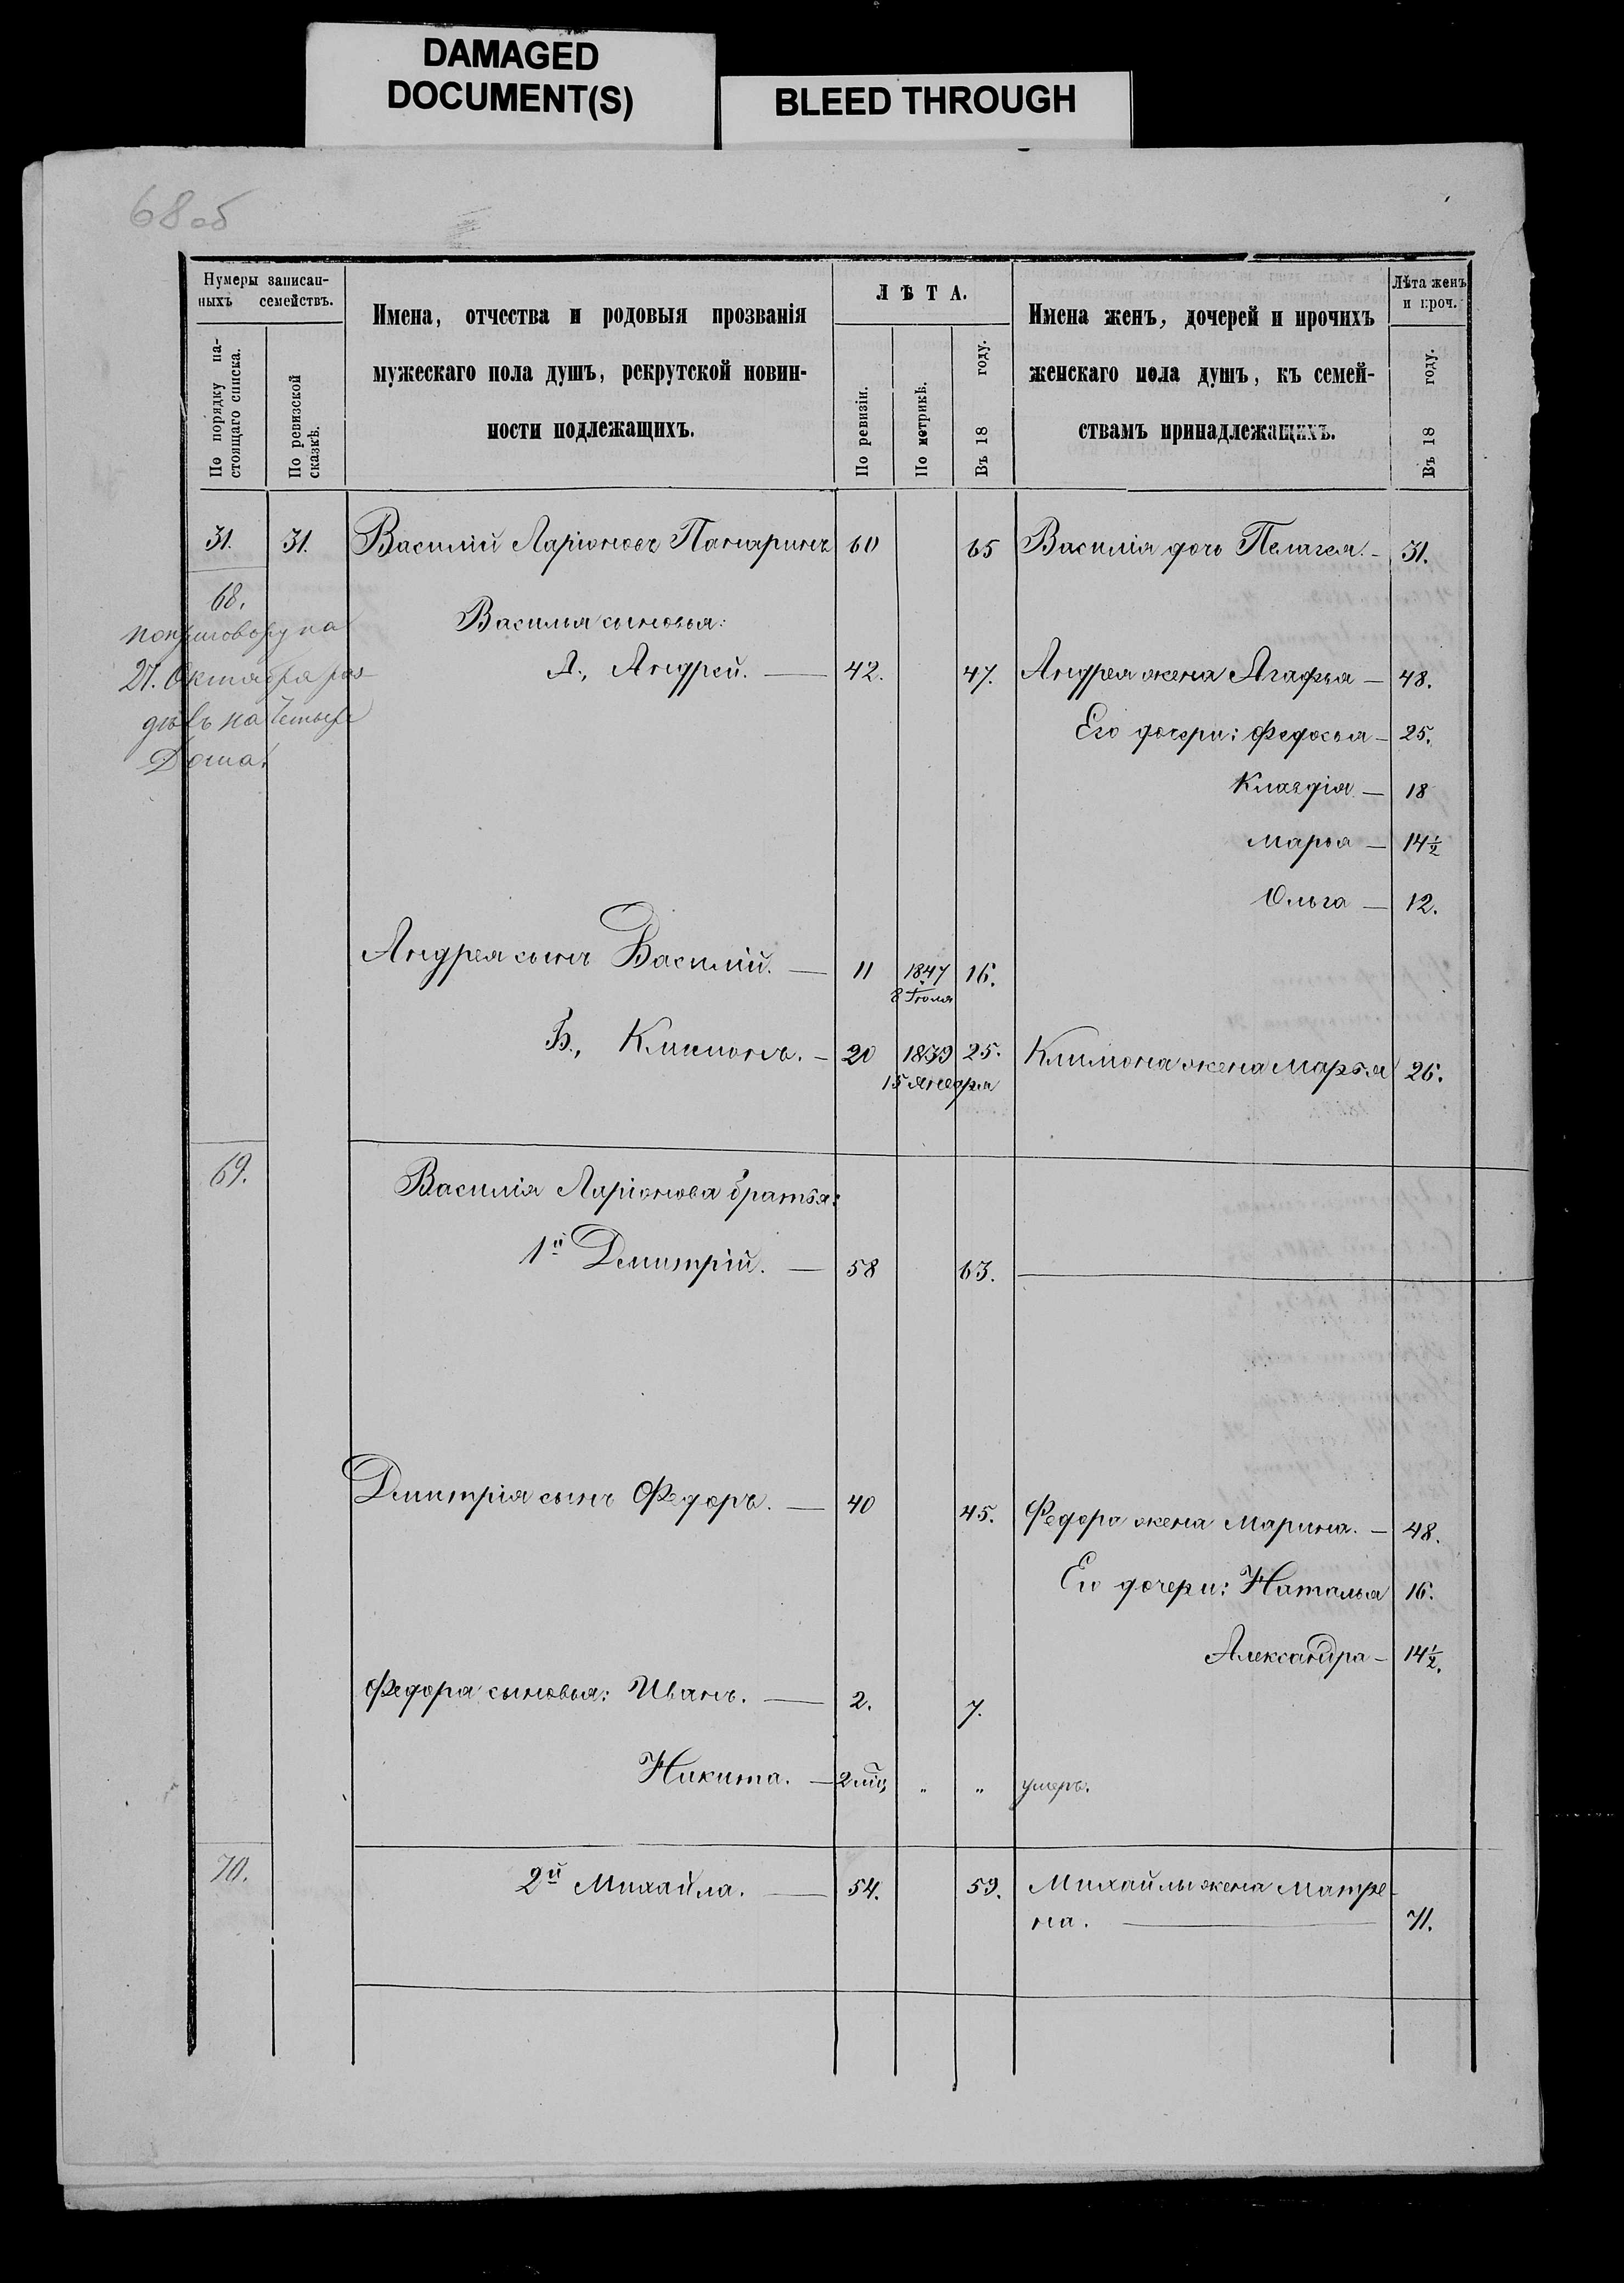 DAMAGED
DOCUMENT(S)
BLEED THROUGH
68об
Нумеры записан-
ныхъ семействъ.
По порядку на-
стоящаго списка.
По ревизской
сказкѣ.
Имена, отчества и родовыя прозванія
мужескаго пола душъ, рекрутской повин-
ности подлежащихъ.
ЛѢТА.
По ревизіи.
По метрикѣ.
Въ 18 году.
Имена женъ, дочерей и прочихъ
женскаго пола душъ, къ семей-
ствамъ принадлежащихъ.
Лѣта женъ
и проч.
Въ 18 году.
31. 31. Василий Ларіоновъ Панаринъ 60 65 Василія дочь Пелагея. — 31.
68.
по приговору на
27. Октября раз-
дѣлъ на четыре
Дома.
Василья сыновья:
А., Андрей. — 42. 47. Андрея жена Агафья — 48.
Его дочери: Федосья — 25.
Клавдія — 18
Марья — 14½
Ольга — 12.
Андрея сынъ Василий. — 11 1847 16.
8 Іюля
Б., Климонъ. — 20 1839 25. Климона жена Марья 26.
15 Января
69.
Василія Ларіонова братья:
1й Дмитрій. — 58 63.
Дмитрія сынъ Федоръ. — 40 45. Федора жена Марина. — 48.
Его дочери: Наталья 16.
Александра — 14½.
Федора сыновья: Иванъ. — 2. 7.
Никита. — 2 мѣц " " умеръ.
70.
2й Михайла. — 54. 59. Михайлы жена Матре-
на. — 71.